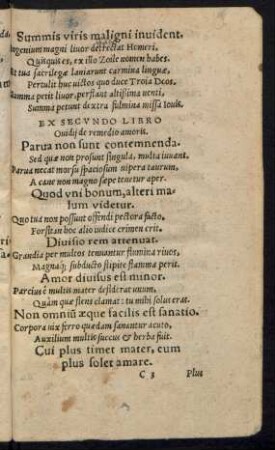 Summis viris maligni inuident.
Ingenium magni liuor detrectat Homeri,
Quisquis es, ex illo Zoile nomen habes.
Et tua sacrilegæ laniarunt carmina linguæ,
Pertulit huc uictos quo duce Troia Deos.
Summa petit liuor, perflant altissima uenti,
Summa petunt dextra fulmina missa Iouis.
EX SECVNDO LIBRO
Ouidij de remedio amoris.
Parua non sunt contemnenda.
Sed quæ non prosunt singula, multa iuuant.
Parua necat morsu spaciosum uipera taurum,
A cane non magno sæpe tenetur aper.
Quod vni bonum, alteri ma-
lum videtur.
Quo tua non possunt offendi pectora facto,
Forsitan hoc alio iudice crimen erit.
Diuisio rem attenuat.
Grandia per multos tenuantur flumina riuos,
Magnaq; subducto stipite flamma perit.
Amor diuisus est minor.
Parcius è multis mater desiderat unum,
Quàm quæ flens clamat: tu mihi solus eras.
Non omniũ æque facilis est sanatio.
Corpora uix ferro quædam sanantur acuto,
Auxilium multis succus & herba fuit.
Cui plus timet mater, eum
plus solet amare.
C 3 Plus